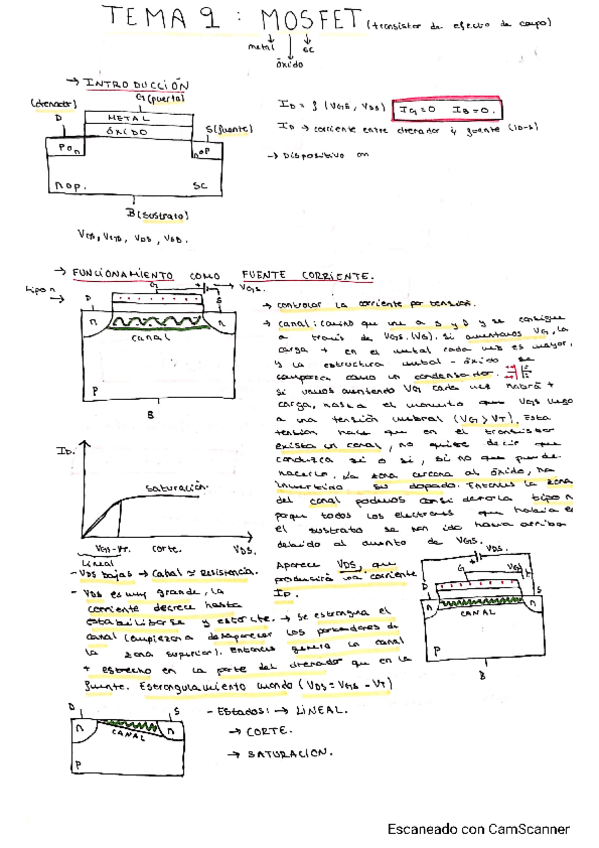 TEMA 9 : MOSFET (transistor de efecto de campo)
metal óxido SC
→ INTRODUCCIÓN
G (puerta)
(drenador)
D
METAL
ÓXIDO
S (fuente)
P o n
n o P
n o p.
SC
B (sustrato)
ID = f (VGS, VDS) IG=0 IB=0.
ID → corriente entre drenador y fuente (D-S)
→ Dispositivo
→ FUNCIONAMIENTO COMO FUENTE CORRIENTE.
tipo n
→
D
G
VGS.
S
n
n
canal
P
B
→ controlar la corriente por tensión.
→ canal: camino que une a S y D y se consigue
a través de VGS (VG). Si aumentamos VG, la
carga + en el metal cada vez es mayor,
y la estructura metal - óxido se
comporta como un condensador.
Si vamos aumentando VG cada vez habrá +
carga, hasta el momento que VGS llega
a una tensión umbral (VG > VT). Esta
tensión hace que en el transistor
exista un canal, no quiere decir que
conduzca sí o sí, si no que puede
hacerlo. La zona cercana al óxido, ha
invertido su dopado. Entonces la zona
del canal podemos considerarla tipo n
porque todos los electrones que había en
el sustrato se han ido hacia arriba
debido al aumento de VGS.
ID.
saturación.
VGS-VT.
corte.
VDS.
Lineal
- VDS bajas → Canal ≈ resistencia.
- VDS es muy grande, la
corriente decrece hasta
estabilizarse y
→ Se estrangula el
canal (empiezan a desaparecer los portadores de
la zona superior). Entonces genera un canal
+ estrecho en la parte del drenador que en la
fuente. Estrangulamiento cuando (VDS = VGS - VT)
Aparece VDS, que
producirá una corriente
ID.
VDS.
G
VGS
D
S
n
n
CANAL
P
B
D
S
n
n
CANAL
P
- Estados: → LINEAL.
→ CORTE.
→ SATURACION.
Escaneado con CamScanner